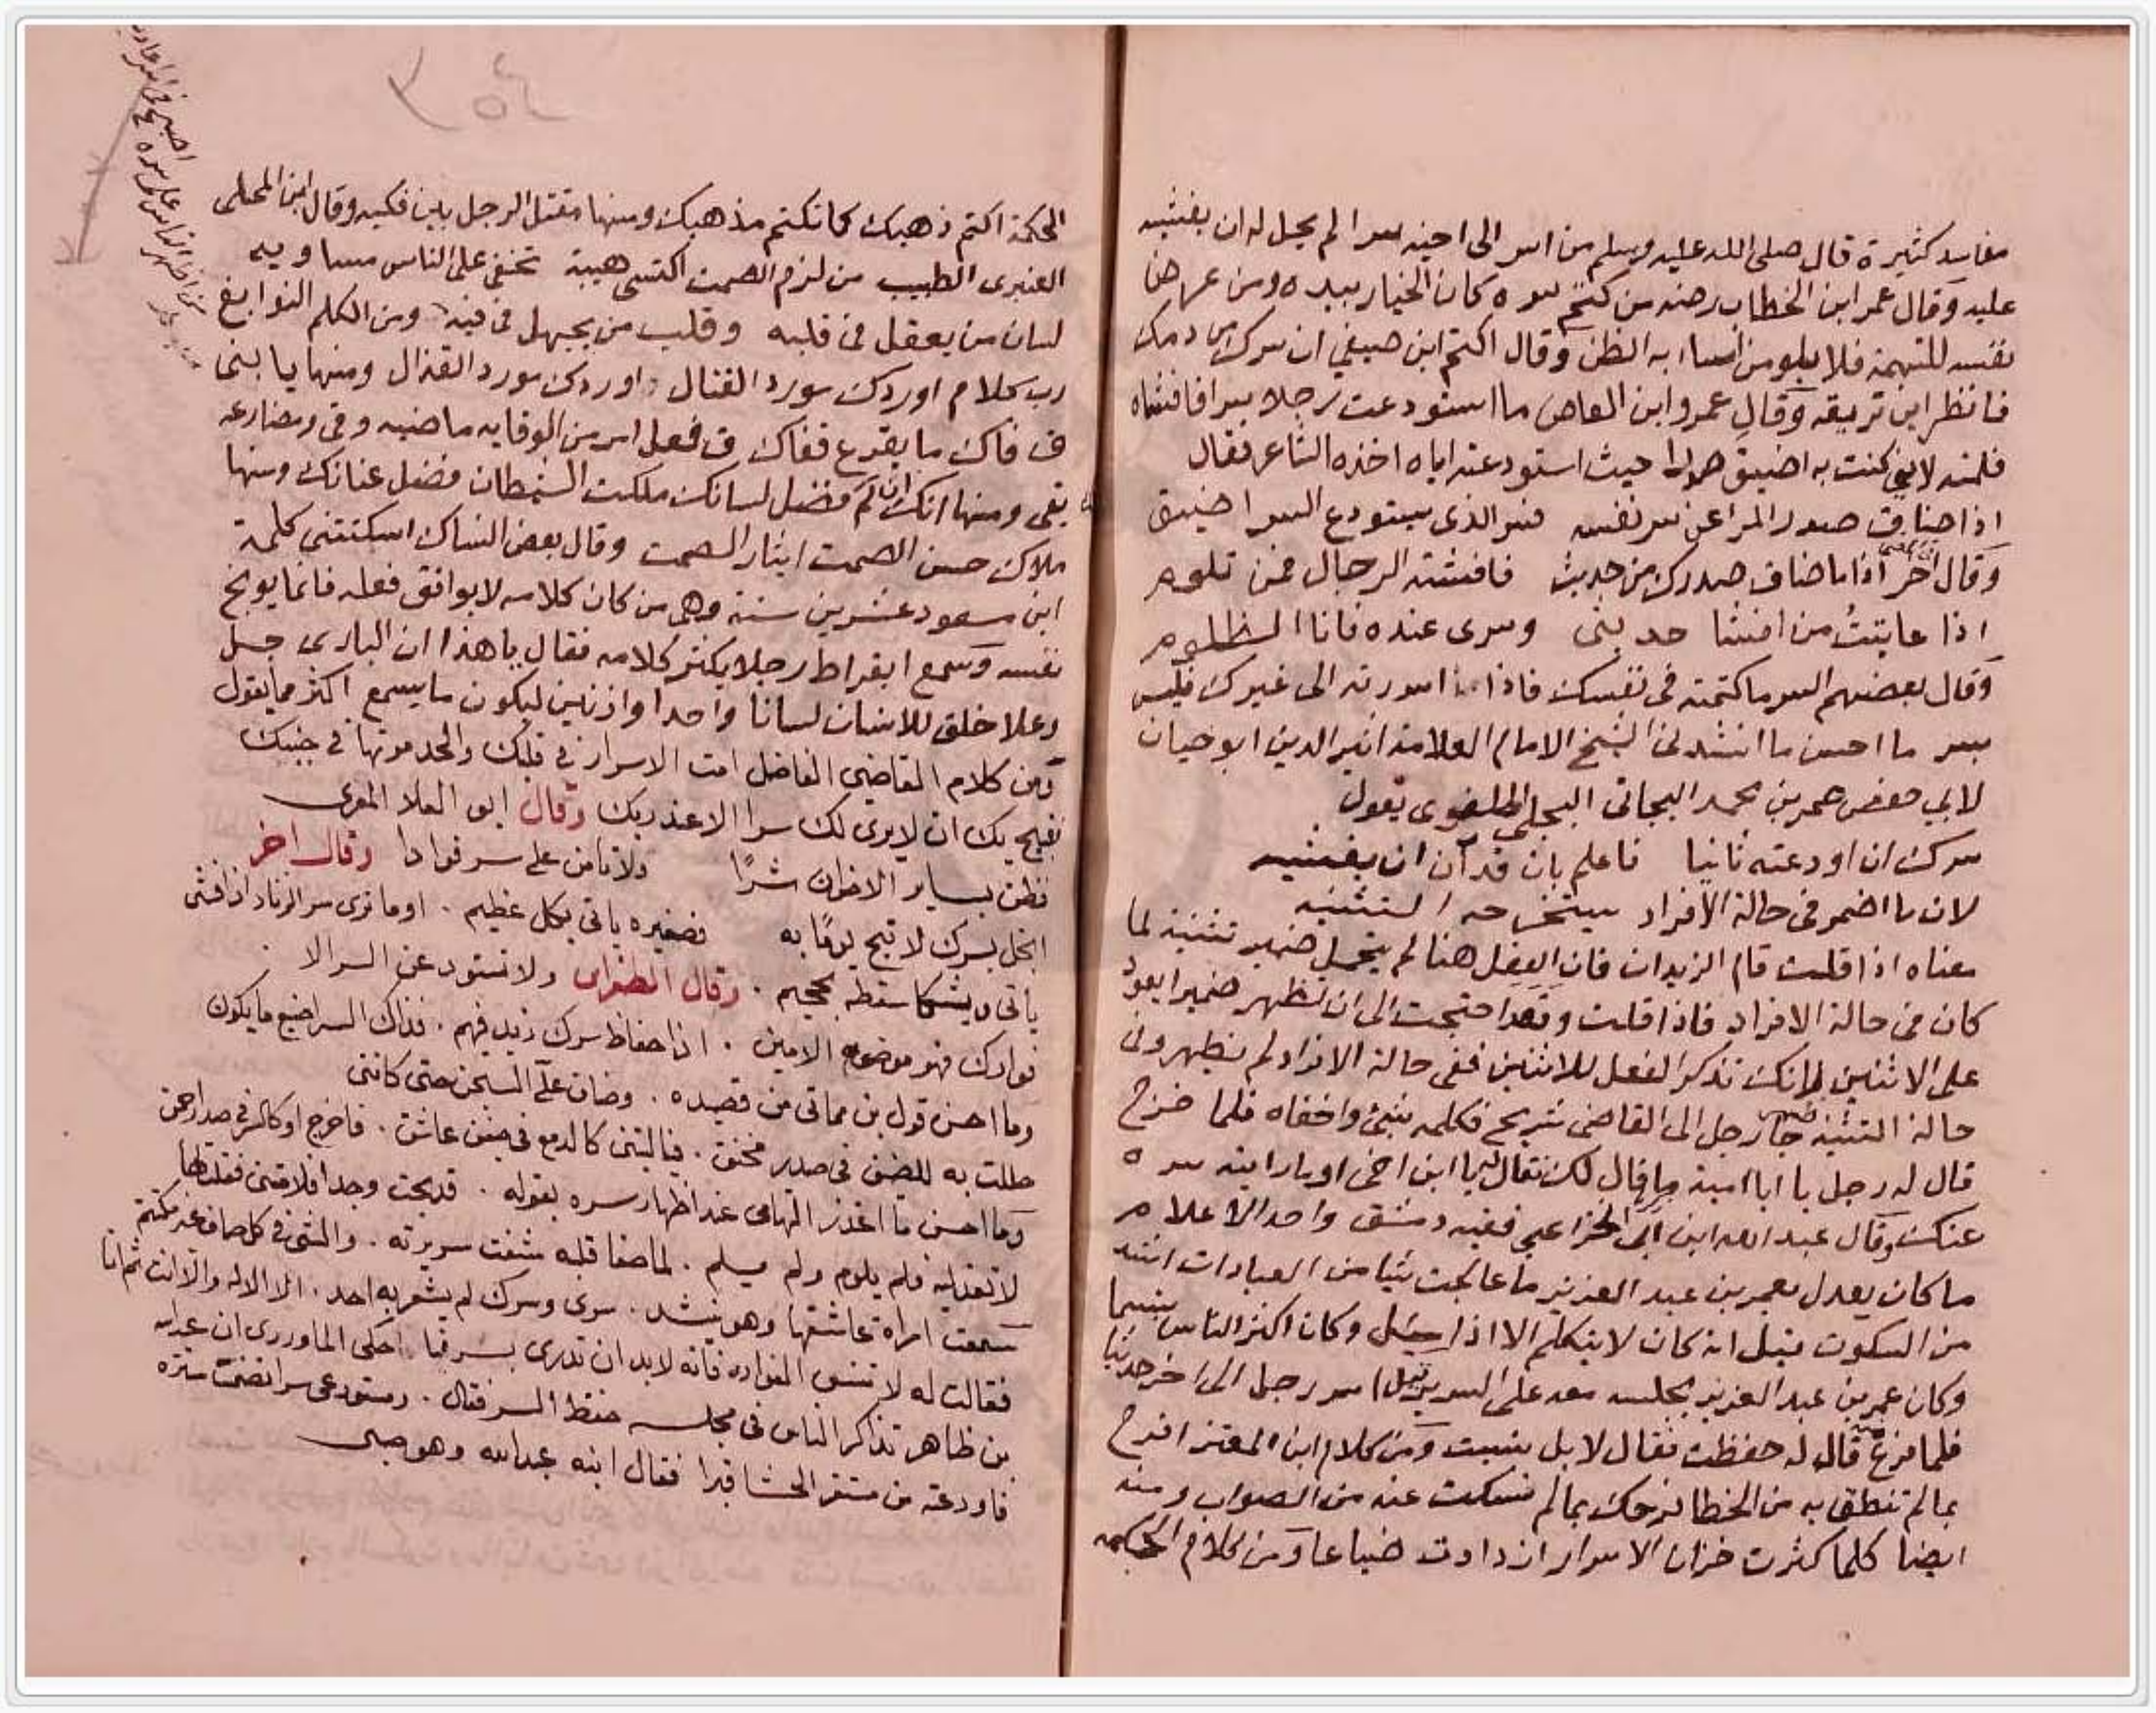 مفاسد كثيرة قال صلى الله عليه وسلم من اسر الى اخيه سرا لم يحل له ان يفشيه
عليه وقال عمر ابن الخطاب رضه من كتم سره كان الخيار بيده ومن عرض
نفسه للتهمة فلا يلومن من اساء به الظن وقال اكثم ابن صيفي ان سرك من دمك
فانظر اين تريقه وقال عمرو ابن العاص ما استودعت رجلا سرا فافشاه
فلمته لاني كنت به اضيق صدرا حيث استودعته اياه اخذه الشاعر فقال
اذا ضاق صدر المرء عن سر نفسه فسر الذي يستودع السر اضيق
وقال اخر اذا ما ضاق صدرك من حديث فافشته الرجال فمن تلوم
اذا عاتبت من افشا حديثي وسري عنده فانا الظلوم
وقال بعضهم السر ما كتمته في نفسك فاذا اسررته الى غيرك فليس
بسر ما احسن ما انشدني الشيخ الامام العلامة اثير الدين ابو حيان
لابي حفص عمر بن محمد البجاتي البجلي يقول
سرك ان اودعته ثانيا فاعلم بان قد آن ان يفشيه
لان ما اضمر في حالة الافراد يستخرجه التثنيه
معناه اذا قلت قام الزيدان فان الفعل هنا لم يتحمل ضمير تثنية لما
كان في حالة الافراد فاذا قلت وقعدا احتجت الى ان تظهر ضميرا يعود
على الاثنين لانك تذكر الفعل للاثنين ففي حالة الافراد لم يظهر وفي
حالة التثنيه ظهر جاء رجل الى القاضي شريح فكلمه بشئ واخفاه فلما خرج
قال له رجل يا ابا امية ما قال لك فقال يا ابن اخي او ما رايته سره
عنك وقال عبد الله ابن ابي الخزاعي فقيه دمشق واحد الاعلام
ما كان يعدل بعمر بن عبد العزيز ما عالجت شيا من العبادات اشد
من السكوت قيل انه كان لا يتكلم الا اذا سئل وكان اكثر الناس بتسما
وكان عمر بن عبد العزيز يجلسه معه على السرير قيل اسر رجل الى اخر حديثا
فلما فرغ قال له حفظت فقال لا بل نسيت ومن كلام ابن المعتز افرح
بما لم تنطق به من الخطا فرحك بما لم تسكت عنه من الصواب ومنه
ايضا كلما كثرت خزان الاسرار ازدادت ضياعا ومن كلام الحكمه
الحكمة اكتم ذهبك كما تكتم مذهبك ومنها مقتل الرجل بين فكيه وقال ابن المحلى
العنبري الطبيب من لزم الصمت اكتسى هيبة تخفي على الناس مساويه
لسان من يعقل في قلبه وقلب من يجهل في فيه ومن الكلم النوابغ
رب كلام اوردك مورد القتال اوردك مورد القذال ومنها يا بني
ق فاك ما يقرع قفاك ق فعل امر من الوقايه ماضيه وقى ومضارعه
يقى ومنها انك ان لم فضل لسانك ملكت الشيطان فضل عنانك ومنها
ملاك حسن الصمت ايثار الصمت وقال بعض النساك اسكتتني كلمة
ابن مسعود عشرين سنة وهي من كان كلامه لا يوافق فعله فانما يوبخ
نفسه وسمع ابقراط رجلا يكثر كلامه فقال يا هذا ان الباري جل
وعلا خلق للانسان لسانا واحدا واذنين ليكون ما يسمع اكثر مما يقول
ومن كلام القاضي الفاضل امت الاسرار في قلبك والحد موتها في جنبك
فقبيح بك ان لا يرى لك سرا الا عند ربك وقال ابو العلا المعري
فظن بساير الاخوان شرا ولا تامن على سر فوادا وقال اخر
ابخل بسرك لا تبح يوما به فصغيره ياتي بكل عظيم . اوما ترى سر الزناد اذا فشى
ياتي وشيكا سقطه بجحيم . وقال الطغراى ولا تستودعن السر الا
فوادك فهو موضعه الامين . اذا حفاظ سرك زيد فيهم . فذاك السر اضيع ما يكون
وما احسن قول بن مماتي من قصيده . وضاق علي السجن حتى كانني
حللت به للضيق في صدر مخنق . فيا ليتني كالدمع في جفن عاشق . فاخرج او كالسر في صدر احمق
وما احسن ما اعتذر التهامي عند اظهار سره بقوله . قد بحت وجدا فلامتني فقلت لها
لا تعذليه فلم يلوم ولم يسلم . لما صفا قلبه شفت سريرته . والشى في كل صاف غير مكتتم
سمعت امراة عاشقها وهو ينشد . سرى وسرك لم يشعر به احد . الا الاله والا انت ثم انا
فقالت له لا تنسى القواده فانه لا بد ان تدرى بسرنا حكى الماوردى ان عبد الله
بن طاهر تذاكر الناس في مجلسه حفظ السر فقال . ومستودعى سرا تضمنت ستره
فاودعته من مستقر الحشا قبرا فقال ابنه عبد الله وهو صبي